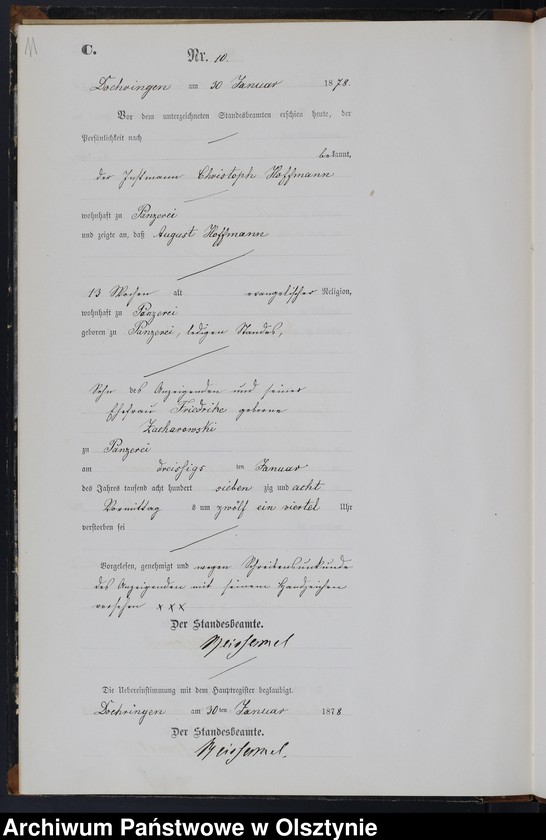 11
C.
Nr. 10.
Dochringen am 30 Januar 1878.
Vor dem unterzeichneten Standesbeamten erschien heute, der
Persönlichkeit nach
bekannt,
der Instmann Christoph Hoffmann
wohnhaft zu Panzerei
und zeigte an, daß August Hoffmann
13 Wochen alt evangelischer Religion,
wohnhaft zu Panzerei
geboren zu Panzerei, ledigen Standes,
Sohn des Anzeigenden und seiner
Ehefrau Friedrike geborne
Zacharowski
zu Panzerei
am dreissigs ten Januar
des Jahres tausend acht hundert sieben zig und acht
Vormittag s um zwölf ein viertel Uhr
verstorben sei
Vorgelesen, genehmigt und wegen Schreibensunkunde
des Anzeigenden mit seinem Handzeichen
versehen x x x
Der Standesbeamte.
Weissemel
Die Uebereinstimmung mit dem Hauptregister beglaubigt.
Dochringen am 30ten Januar 1878
Der Standesbeamte.
Weissemel.
Archiwum Państwowe w Olsztynie